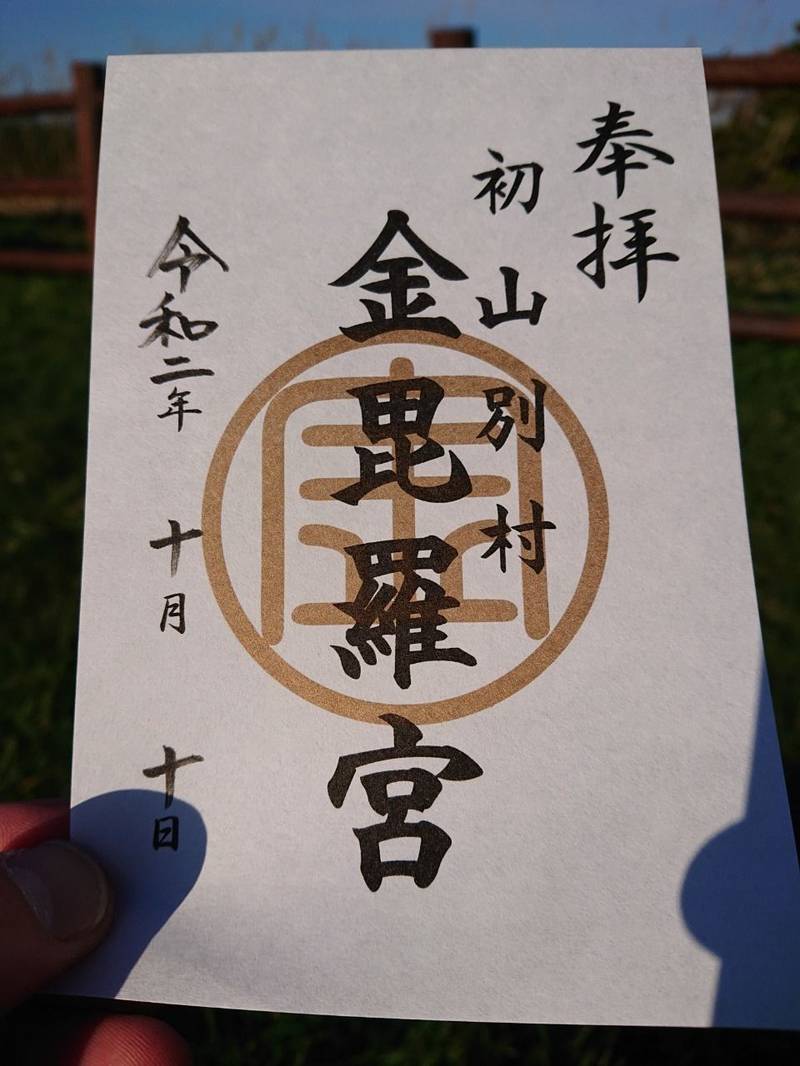 奉拝
初山別村
金毘羅宮
令和二年 十月 十日